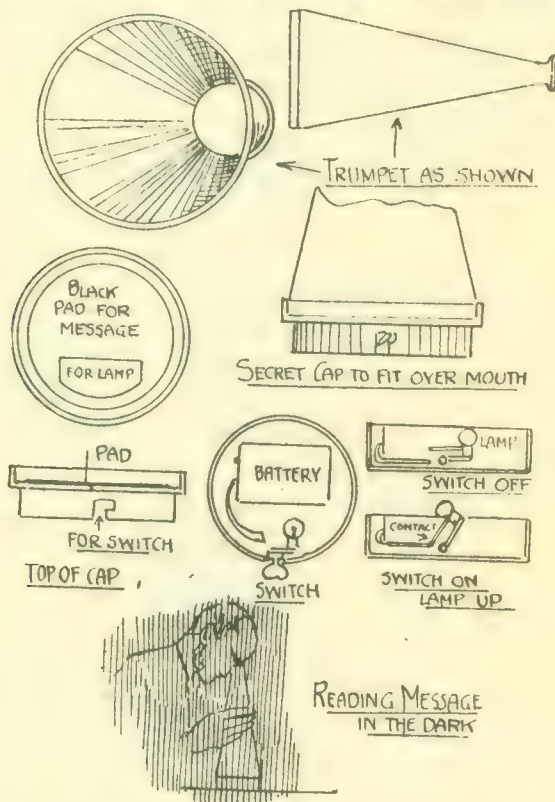 TRUMPET AS SHOWN
BLACK
PAD FOR
MESSAGE
FOR LAMP
SECRET CAP TO FIT OVER MOUTH
PAD
FOR SWITCH
TOP OF CAP
BATTERY
SWITCH
LAMP
SWITCH OFF
CONTACT
SWITCH ON
LAMP UP
READING MESSAGE
IN THE DARK